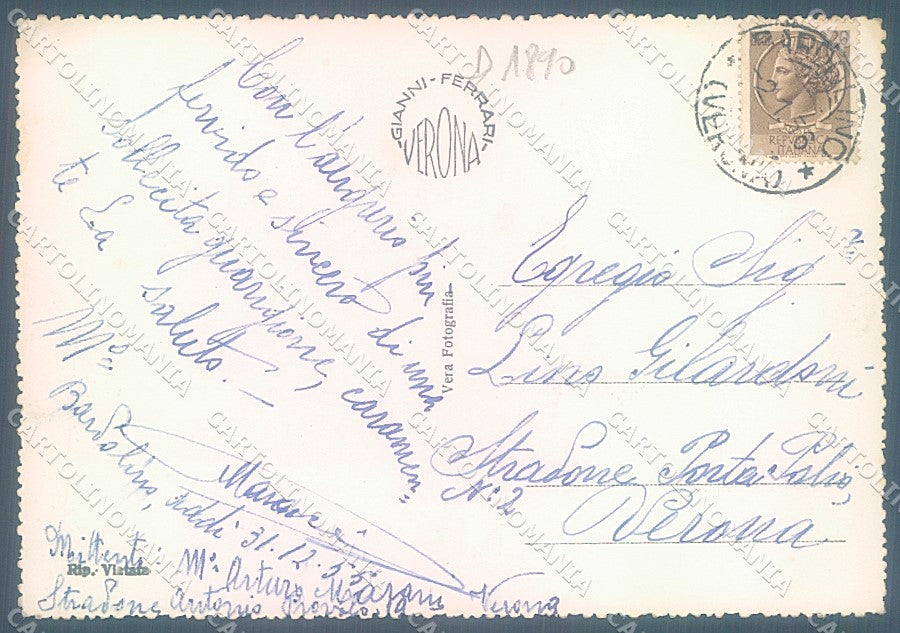 D 1890
GIANNI-FERRARI
VERONA
Con l'augurio più
fervido e sincero di una
sollecita guarigione, caramen=
te La saluto.
M°
Bardolino, addì 31.12.55
Mittente M° Arturo
Stradone Antonio Provolo, Verona
Rip. Vietata
Vera Fotografia
BARDOLINO
(VERONA)
REPUBBLICA
ITALIANA
Egregio Sig
Lino Gilardoni
Stradone Porta Palio,
N: 2
Verona
CARTOLINOMANIA